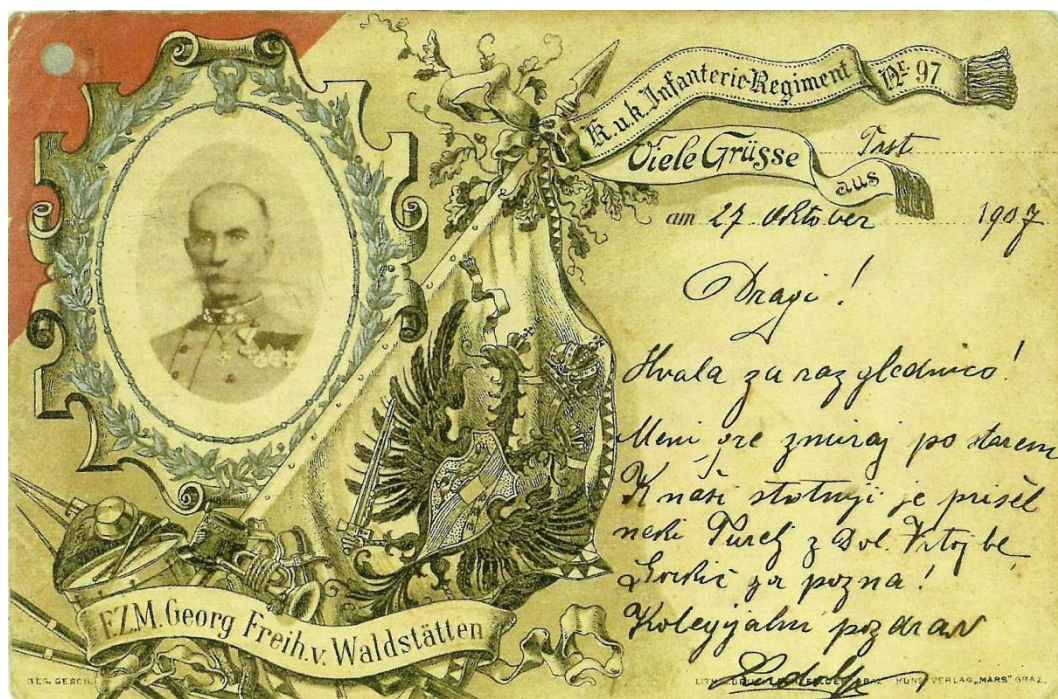 K.u.k. Infanterie-Regiment Nr. 97
Viele Grüsse aus Trst
am 27 Oktober 1907
Dragi!
Hvala za razglednico!
Meni gre zmiraj po starem
K naši stotniji je prišel
neki Turel z Dol. Vrtojbe
ga pozna!
Kolegijalni pozdrav
F.Z.M. Georg Freih. v. Waldstätten
GES. GESCH.
GRAZ KUNSTVERLAG „MARS“ GRAZ.